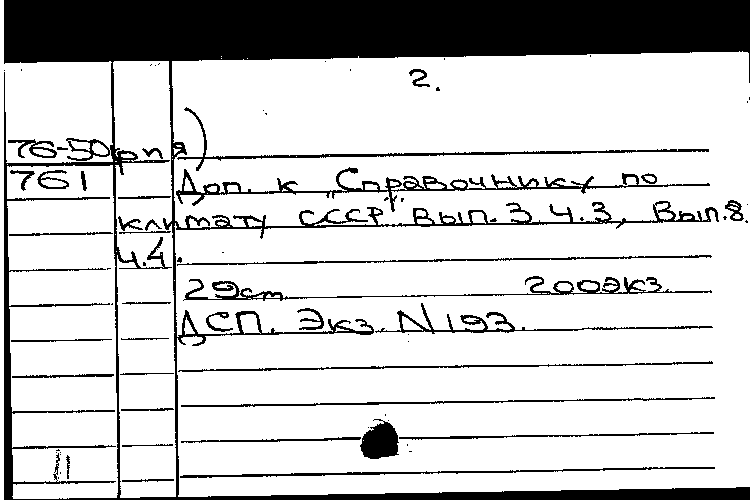 2.
76-50крпя)
761 Доп. к „Справочнику по
климату СССР". Вып.3 ч.3, Вып.8
ч.4.
29см 200экз.
ДСП. Экз. N193.
11